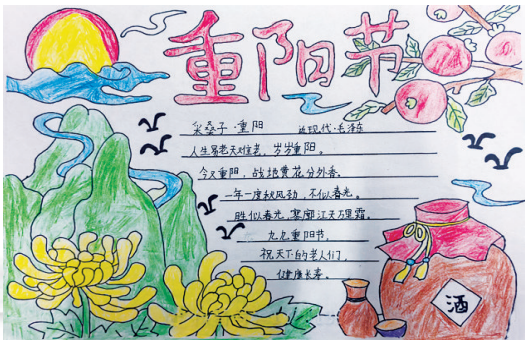 重阳节
采桑子·重阳 近现代·毛泽东
人生易老天难老，岁岁重阳。
今又重阳，战地黄花分外香。
一年一度秋风劲，不似春光。
胜似春光，寥廓江天万里霜。
九九重阳节，
祝天下的老人们，
健康长寿。
酒